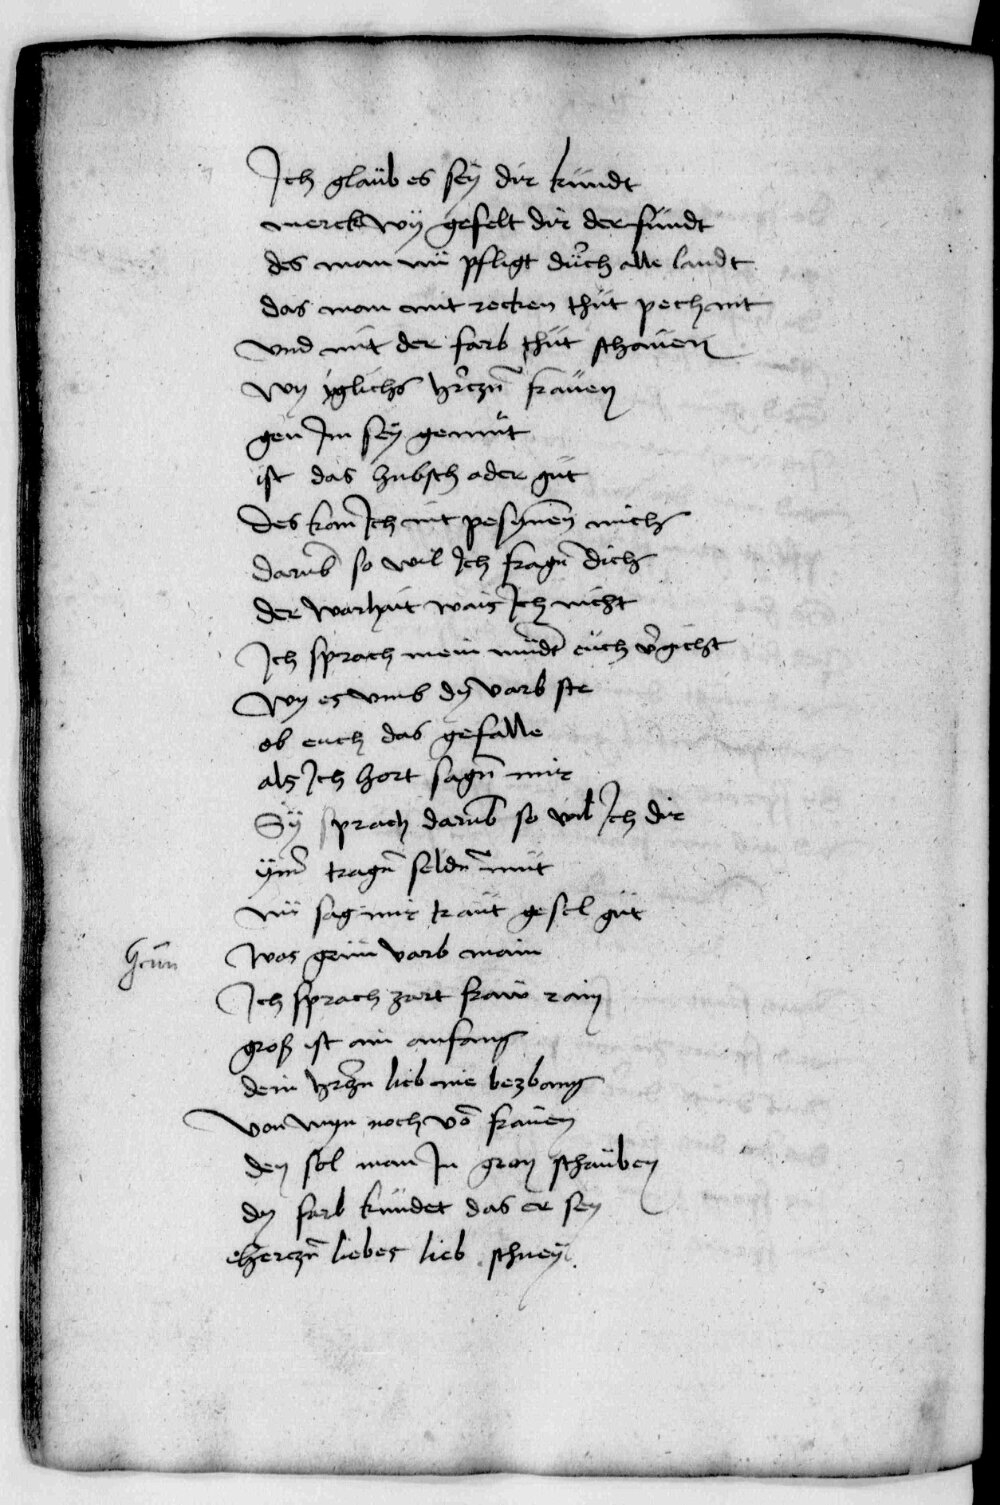 Ich glaub es sey dir kundt
merck wy gefelt dir der fundt
des man nu pfligt durch alle landt
das man mit recken thut pechant
vnd mit der farb thut schauen
wy yglichs herczn̄ frauen
gen Im sey gemut
ist das hubsch ader gut
des kan Ich nit pesynnen mich
darūb so wil Ich fragn̄ dich
der warhait wais Ich nicht
Ich sprach mein mundt euch v̄gicht
wy es vmb dy varb ste
ob euch das gefalle
als Ich hort sagn̄ mir
Sy sprach darūb so wil Ich dir
ym̄ tragn̄ seldn̄ mut
nu sag mir traut gesel gut
Grün was grun varb main
Ich sprach zart fraw rain
groß ist ain anfang
dem herczn lieb nie bezbang
von wyn noch vō frauen
den sol man In gron schauben
dy farb kundet das er sey
herczn̄ liebes lieb schney